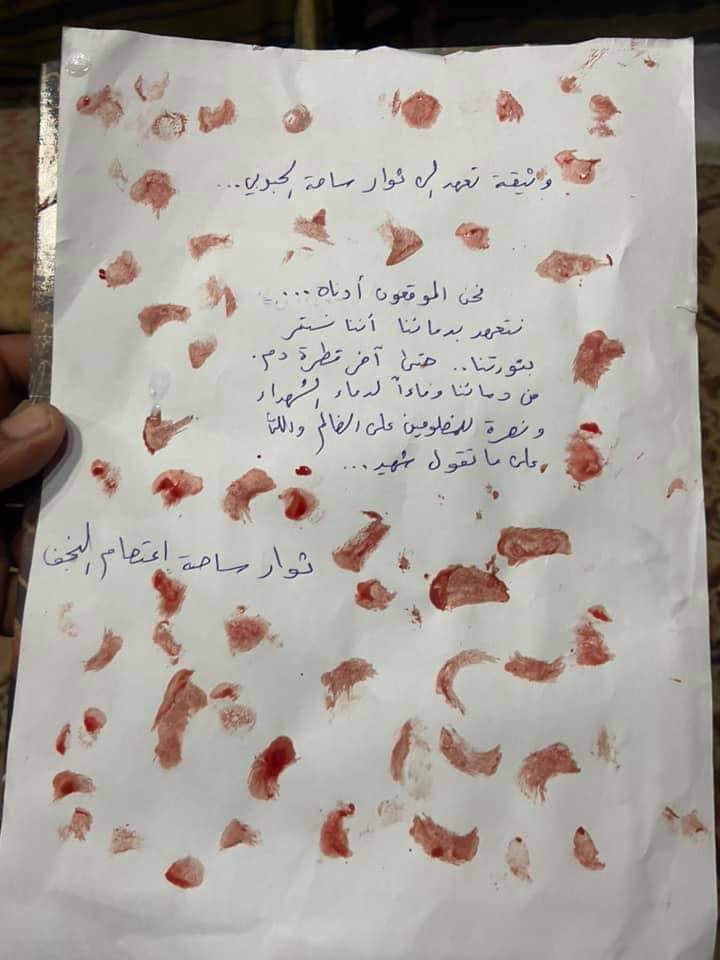 وثيقة تعهد الى ثوار ساحة الحبوبي...
نحن الموقعون أدناه...
نتعهد بدمائنا أننا نستمر
بثورتنا.. حتى آخر قطرة دم.
من دمائنا وفاءاً لدماء الشهداء
ونصرة للمضلومين على الضالم واللّٰه
على ما نقول شهيد...
ثوار ساحة اعتصام النجف